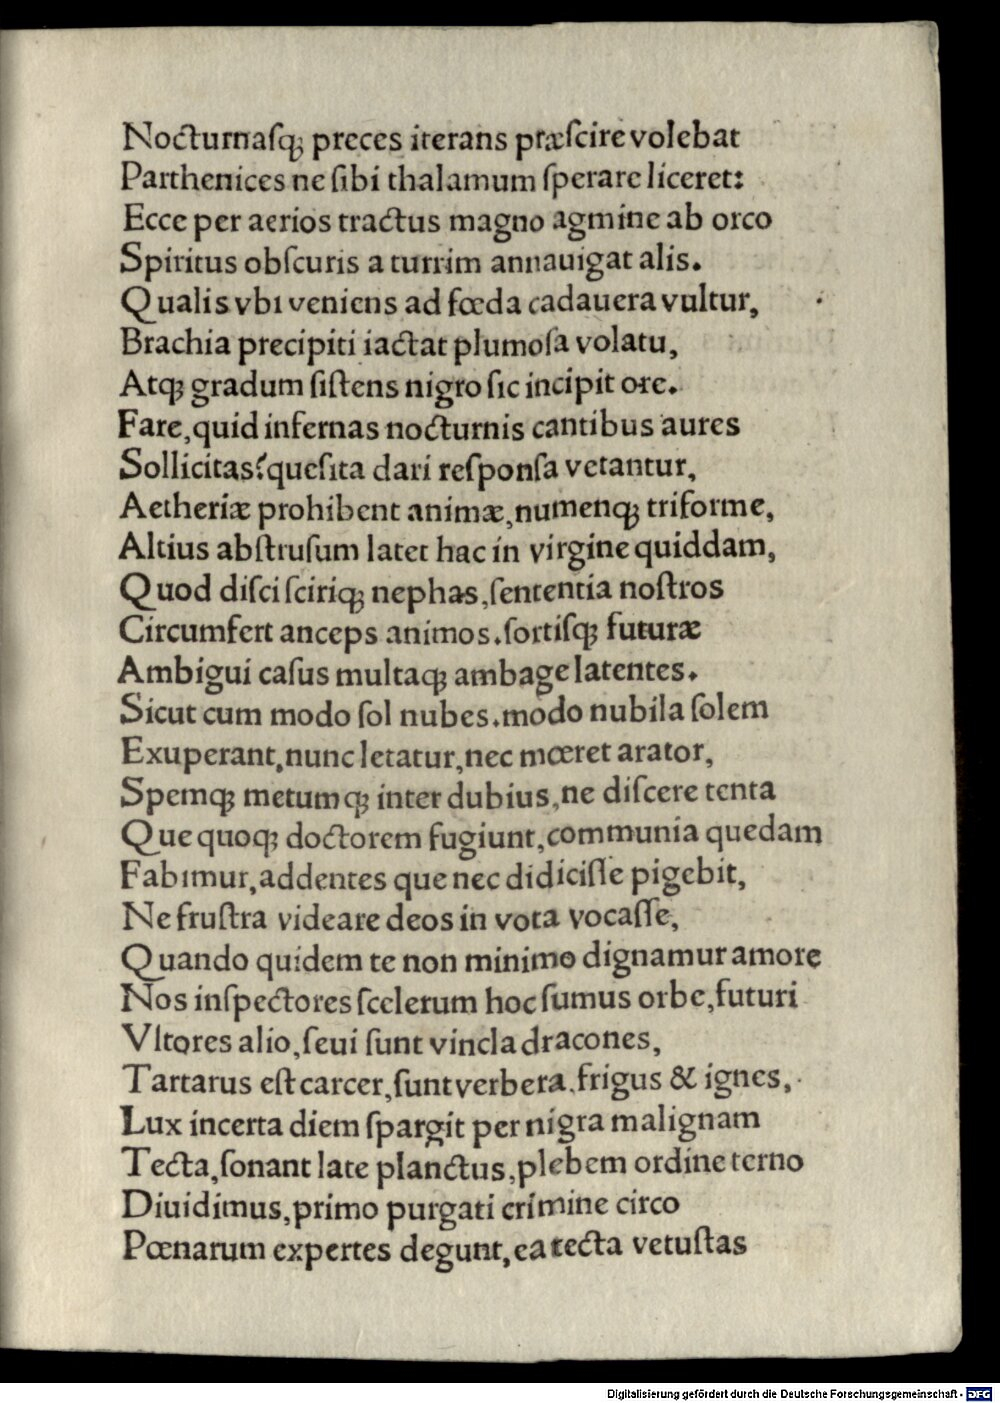 Nocturnaſqꝫ preces iterans præſcire volebat
Parthenices ne ſibi thalamum ſperare liceret:
Ecce per aerios tractus magno agmine ab orco
Spiritus obſcuris a turrim annauigat alis.
Qualis vbi veniens ad fœda cadauera vultur,
Brachia precipiti iactat plumoſa volatu,
Atqꝫ gradum ſiſtens nigro ſic incipit ore.
Fare,quid infernas nocturnis cantibus aures
Sollicitas?queſita dari reſponſa vetantur,
Aetheriæ prohibent animæ,numenqꝫ triforme,
Altius abſtruſum latet hac in virgine quiddam,
Quod diſci ſciriqꝫ nephas,ſententia noſtros
Circumfert anceps animos.ſortiſqꝫ futuræ
Ambigui caſus multaqꝫ ambage latentes.
Sicut cum modo ſol nubes.modo nubila ſolem
Exuperant,nunc letatur,nec mœret arator,
Spemqꝫ metumqꝫ inter dubius,ne diſcere tenta
Que quoqꝫ doctorem fugiunt,communia quedam
Fabimur,addentes que nec didiciſſe pigebit,
Ne fruſtra videare deos in vota vocaſſe,
Quando quidem te non minimo dignamur amore
Nos inſpectores ſcelerum hoc ſumus orbe,futuri
Vltores alio,ſeui ſunt vincla dracones,
Tartarus eſt carcer,ſunt verbera.frigus & ignes,
Lux incerta diem ſpargit per nigra malignam
Tecta,ſonant late planctus,plebem ordine terno
Diuidimus,primo purgati crimine circo
Pœnarum expertes degunt,ea tecta vetuſtas
Digitalisierung gefördert durch die Deutsche Forschungsgemeinschaft - DFG